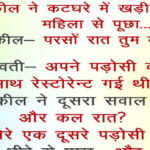 ील ने कटघरे में खड़ी
महिला से पूछा...
कील— परसों रात तुम क
वती— अपने पड़ोसी क
साथ रेस्टोरेन्ट गई थी
कील ने दूसरा सवाल
और कल रात?
रे एक दूसरे पड़ोसी